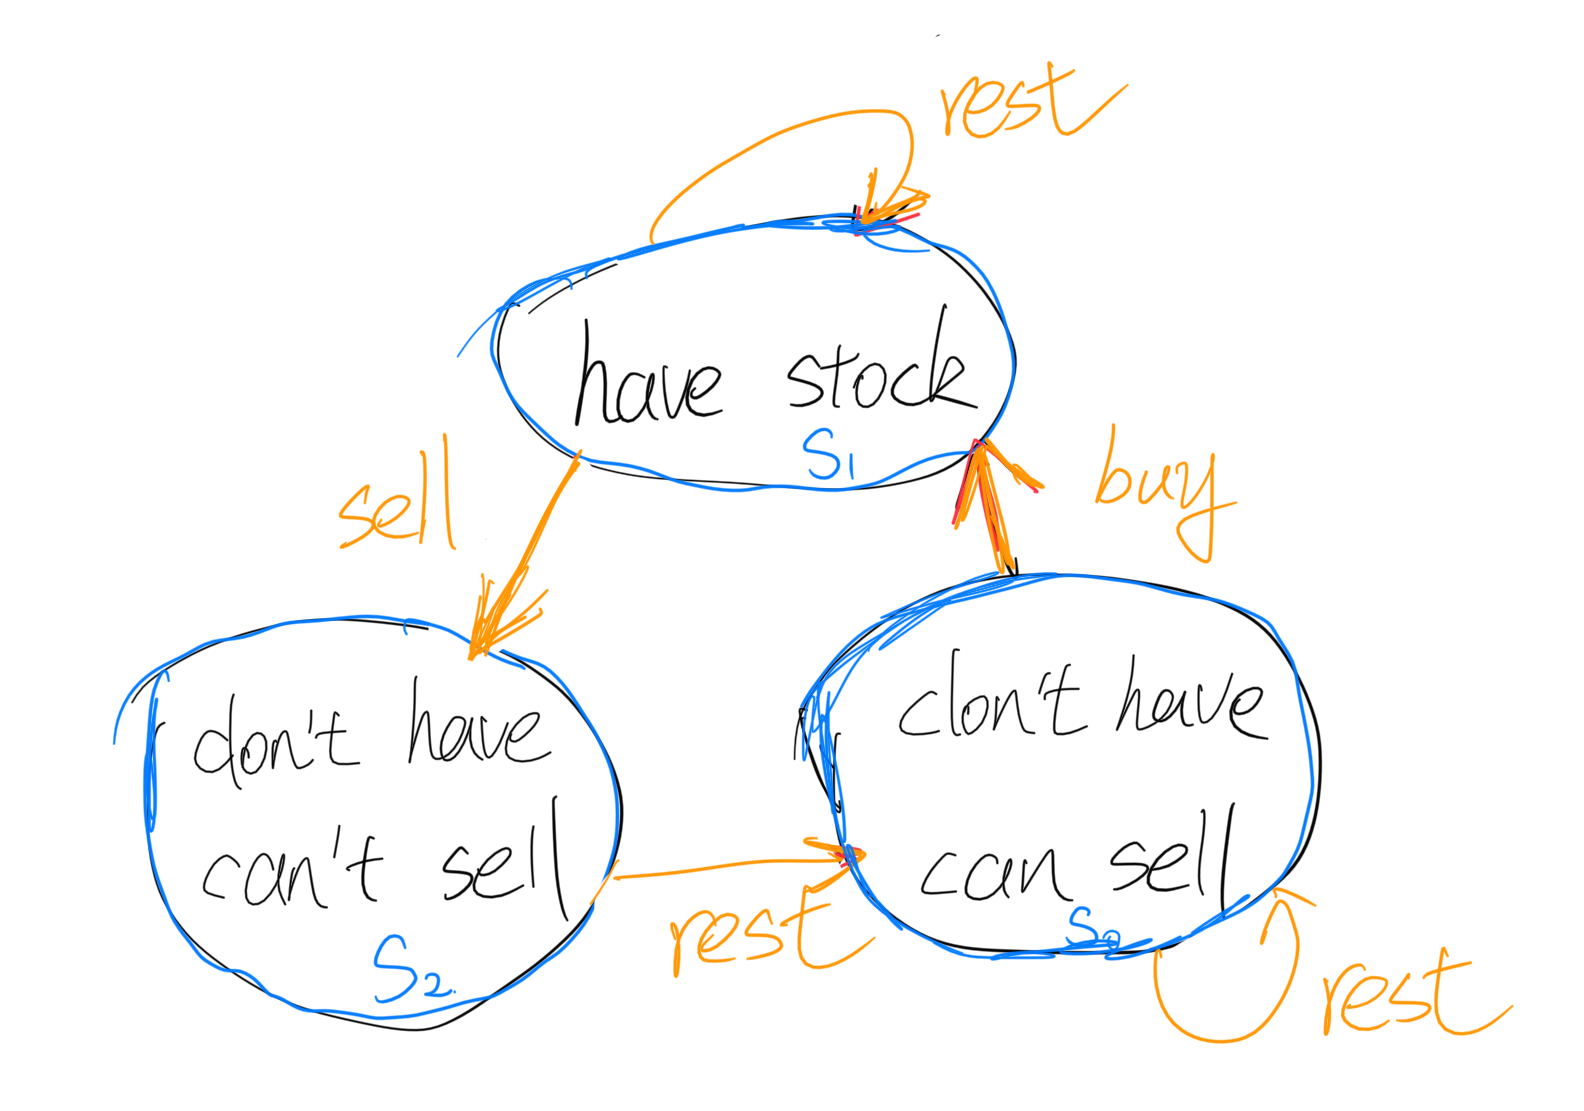 rest
have stock
S1
sell
buy
don't have
can't sell
S2
rest
don't have
can sell
S0
rest